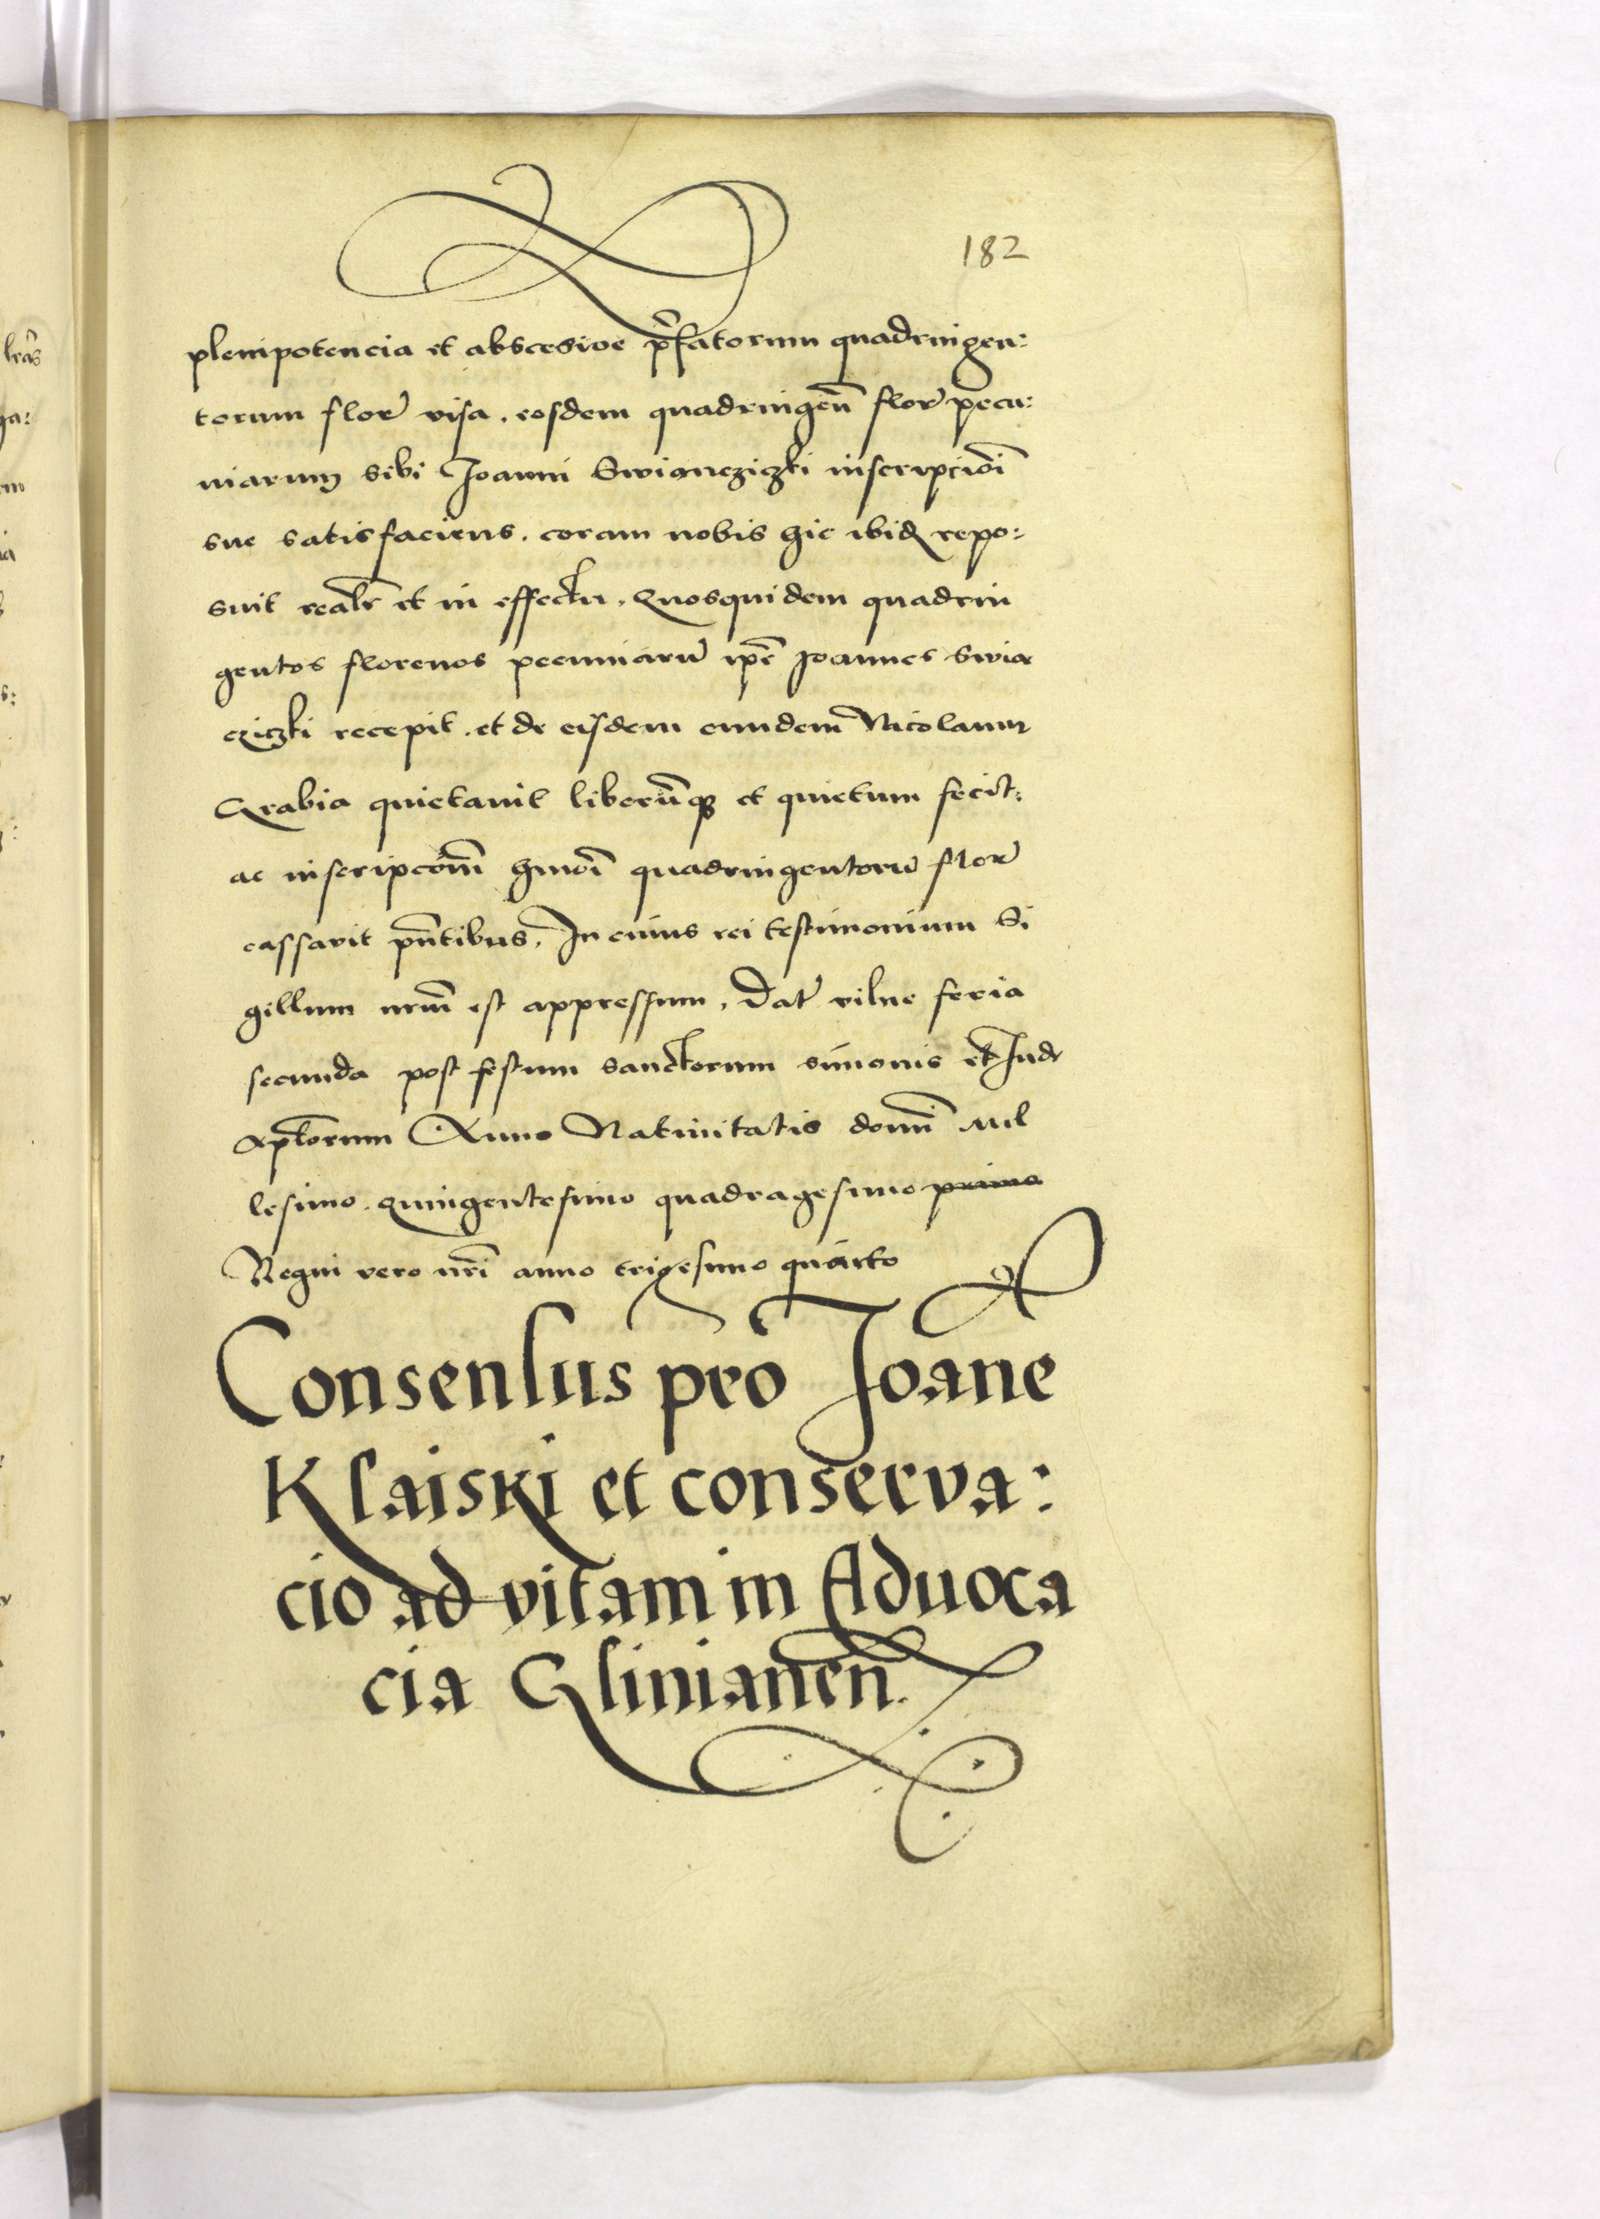 182
plenipotencia et abscesive p̃fatorum quadringen:
torum flor̃ visa . eosdem quadringeñ flor̃ pecu:
niarum sibi Joanni Swiancziczki inscripcioĩ
sue satisfaciens . coram nobis hic ibid repo:
suit realr̃ et in effectu . Quosquidem quadrin
gentos florenos pecuniarũ ip̃e Joannes Swia
cziczki recepit . et de eisdem eundem Nicolaum
Grabia quietavit liberũq3 et quietum fecit:
ac inscripcoñm hmoĩ quadringentorũ flor̃
cassavit pñtibus . In cuius rei testimonium Si
gillum nr̃m est appressum . Dat̃ vilne feria
secunda post festum sanctorum simonis et Jude
aptl̃orum Anno Nativitatis domĩ Mil
lesimo . Quingentesimo quadragesimo primo
Regni vero nr̃i anno trigesimo quarto
Consensus pro Joãne
Klaiski et conserva:
cio ad vitam in Aduoca
cia Glinianeñ.
leãs
ga: